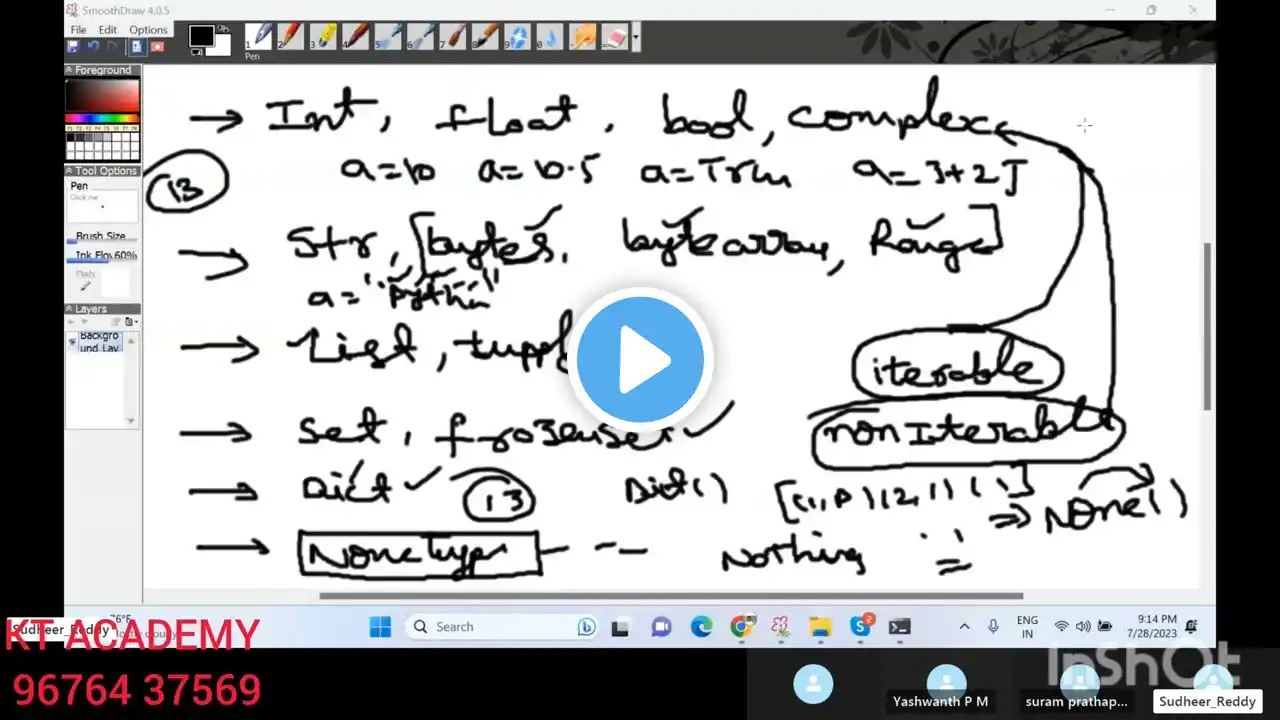 SmoothDraw 4.0.5
File Edit Options
Foreground
Tool Options
Pen
Click me
Brush Size
Ink Flow 60%
Layers
Backgro
und Lay
1 2 3 4 5 6 7 8 9 0
Pen
→ Int, float, bool, complex
a=10 a=10.5 a=True a=3+2J
13
→ Str, [bytes, bytearray, Range]
a="python"
→ List, tupple
iterable
→ set, frozenset
non Iterable
→ Dict 13 Dict()
→ None()
→ NoneType Nothing
76°F
Search
ENG
IN
9:14 PM
7/28/2023
Sudheer_Reddy
KT ACADEMY
96764 37569
InShOt
Yashwanth P M suram prathap... Sudheer_Reddy